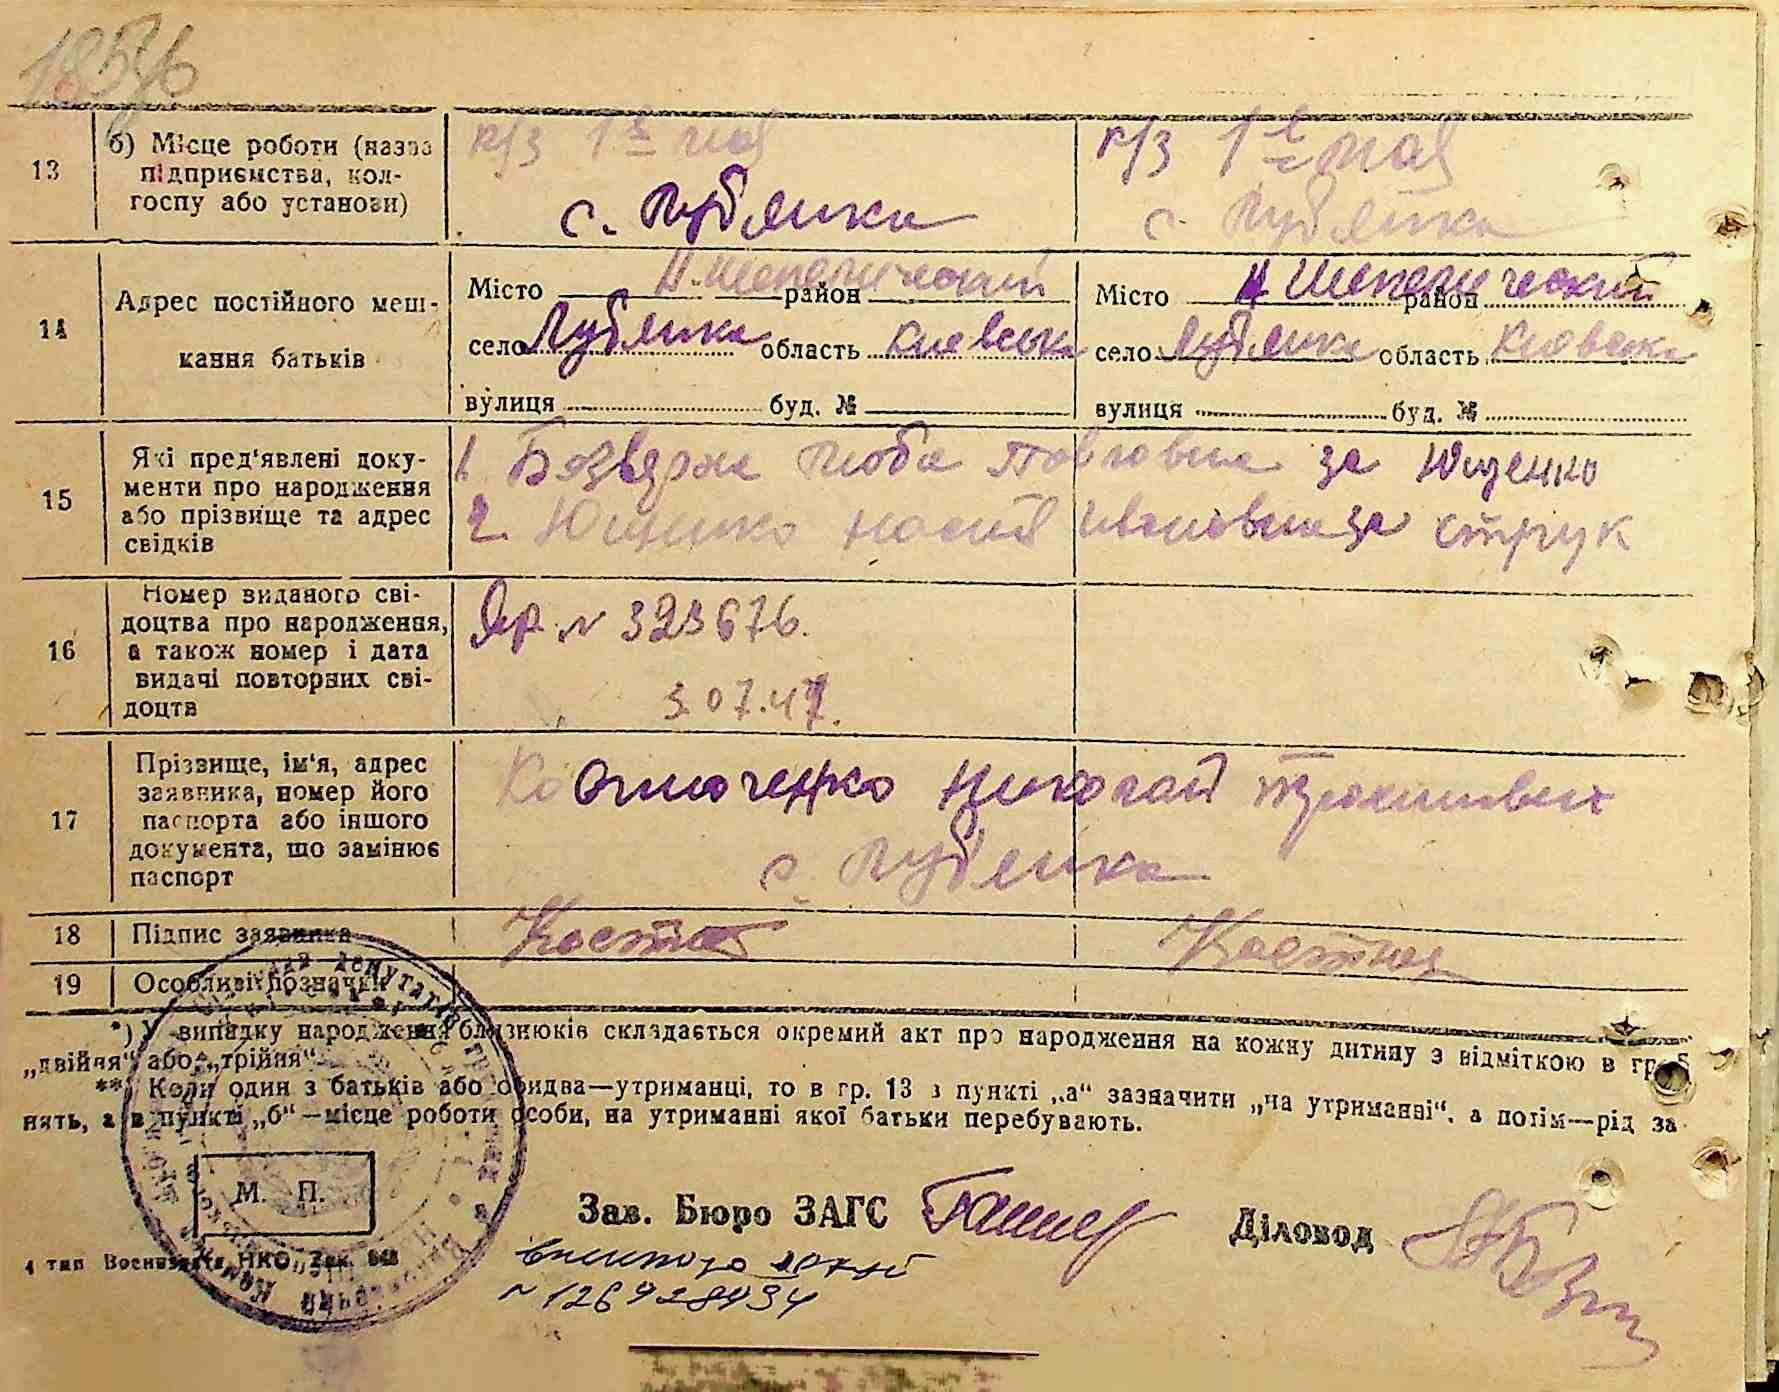 13
б) Місце роботи (назва
підприємства, кол-
госпу або установи)
к/з 1е мая
с. Лубянка
к/з 1е мая
с. Лубянка
14
Адрес постійного меш-
кання батьків
Місто район
село Лубянка область Киевська
вулиця буд. №
Місто район
село Лубянка область
вулиця буд. №
15
Які пред'явлені доку-
менти про народження
або прізвище та адрес
свідків
1. Люба Павловна за Ющенко
2. Ющенко Ивановна за Струк
16
Номер виданого сві-
доцтва про народження,
а також номер і дата
видачі повторних сві-
доцтв
N 323676.
3.07.47.
17
Прізвище, ім'я, адрес
заявника, номер його
паспорта або іншого
документа, що замінює
паспорт
Николай
с. Лубянка
18
Підпис заявника
19
Особливі позначки
*) У випадку народження близнюків складається окремий акт про народження на кожну дитину з відміткою в гр. 5
„двійня“ або „трійня“.
**) Коли один з батьків або обидва—утриманці, то в гр. 13 в пункті „а“ зазначити „на утриманні“, а потім—рід за-
нять, а в пункті „б“—місце роботи особи, на утриманні якої батьки перебувають.
М. П.
Зав. Бюро ЗАГС
Діловод
4 тип Воениздата НКО Зак.